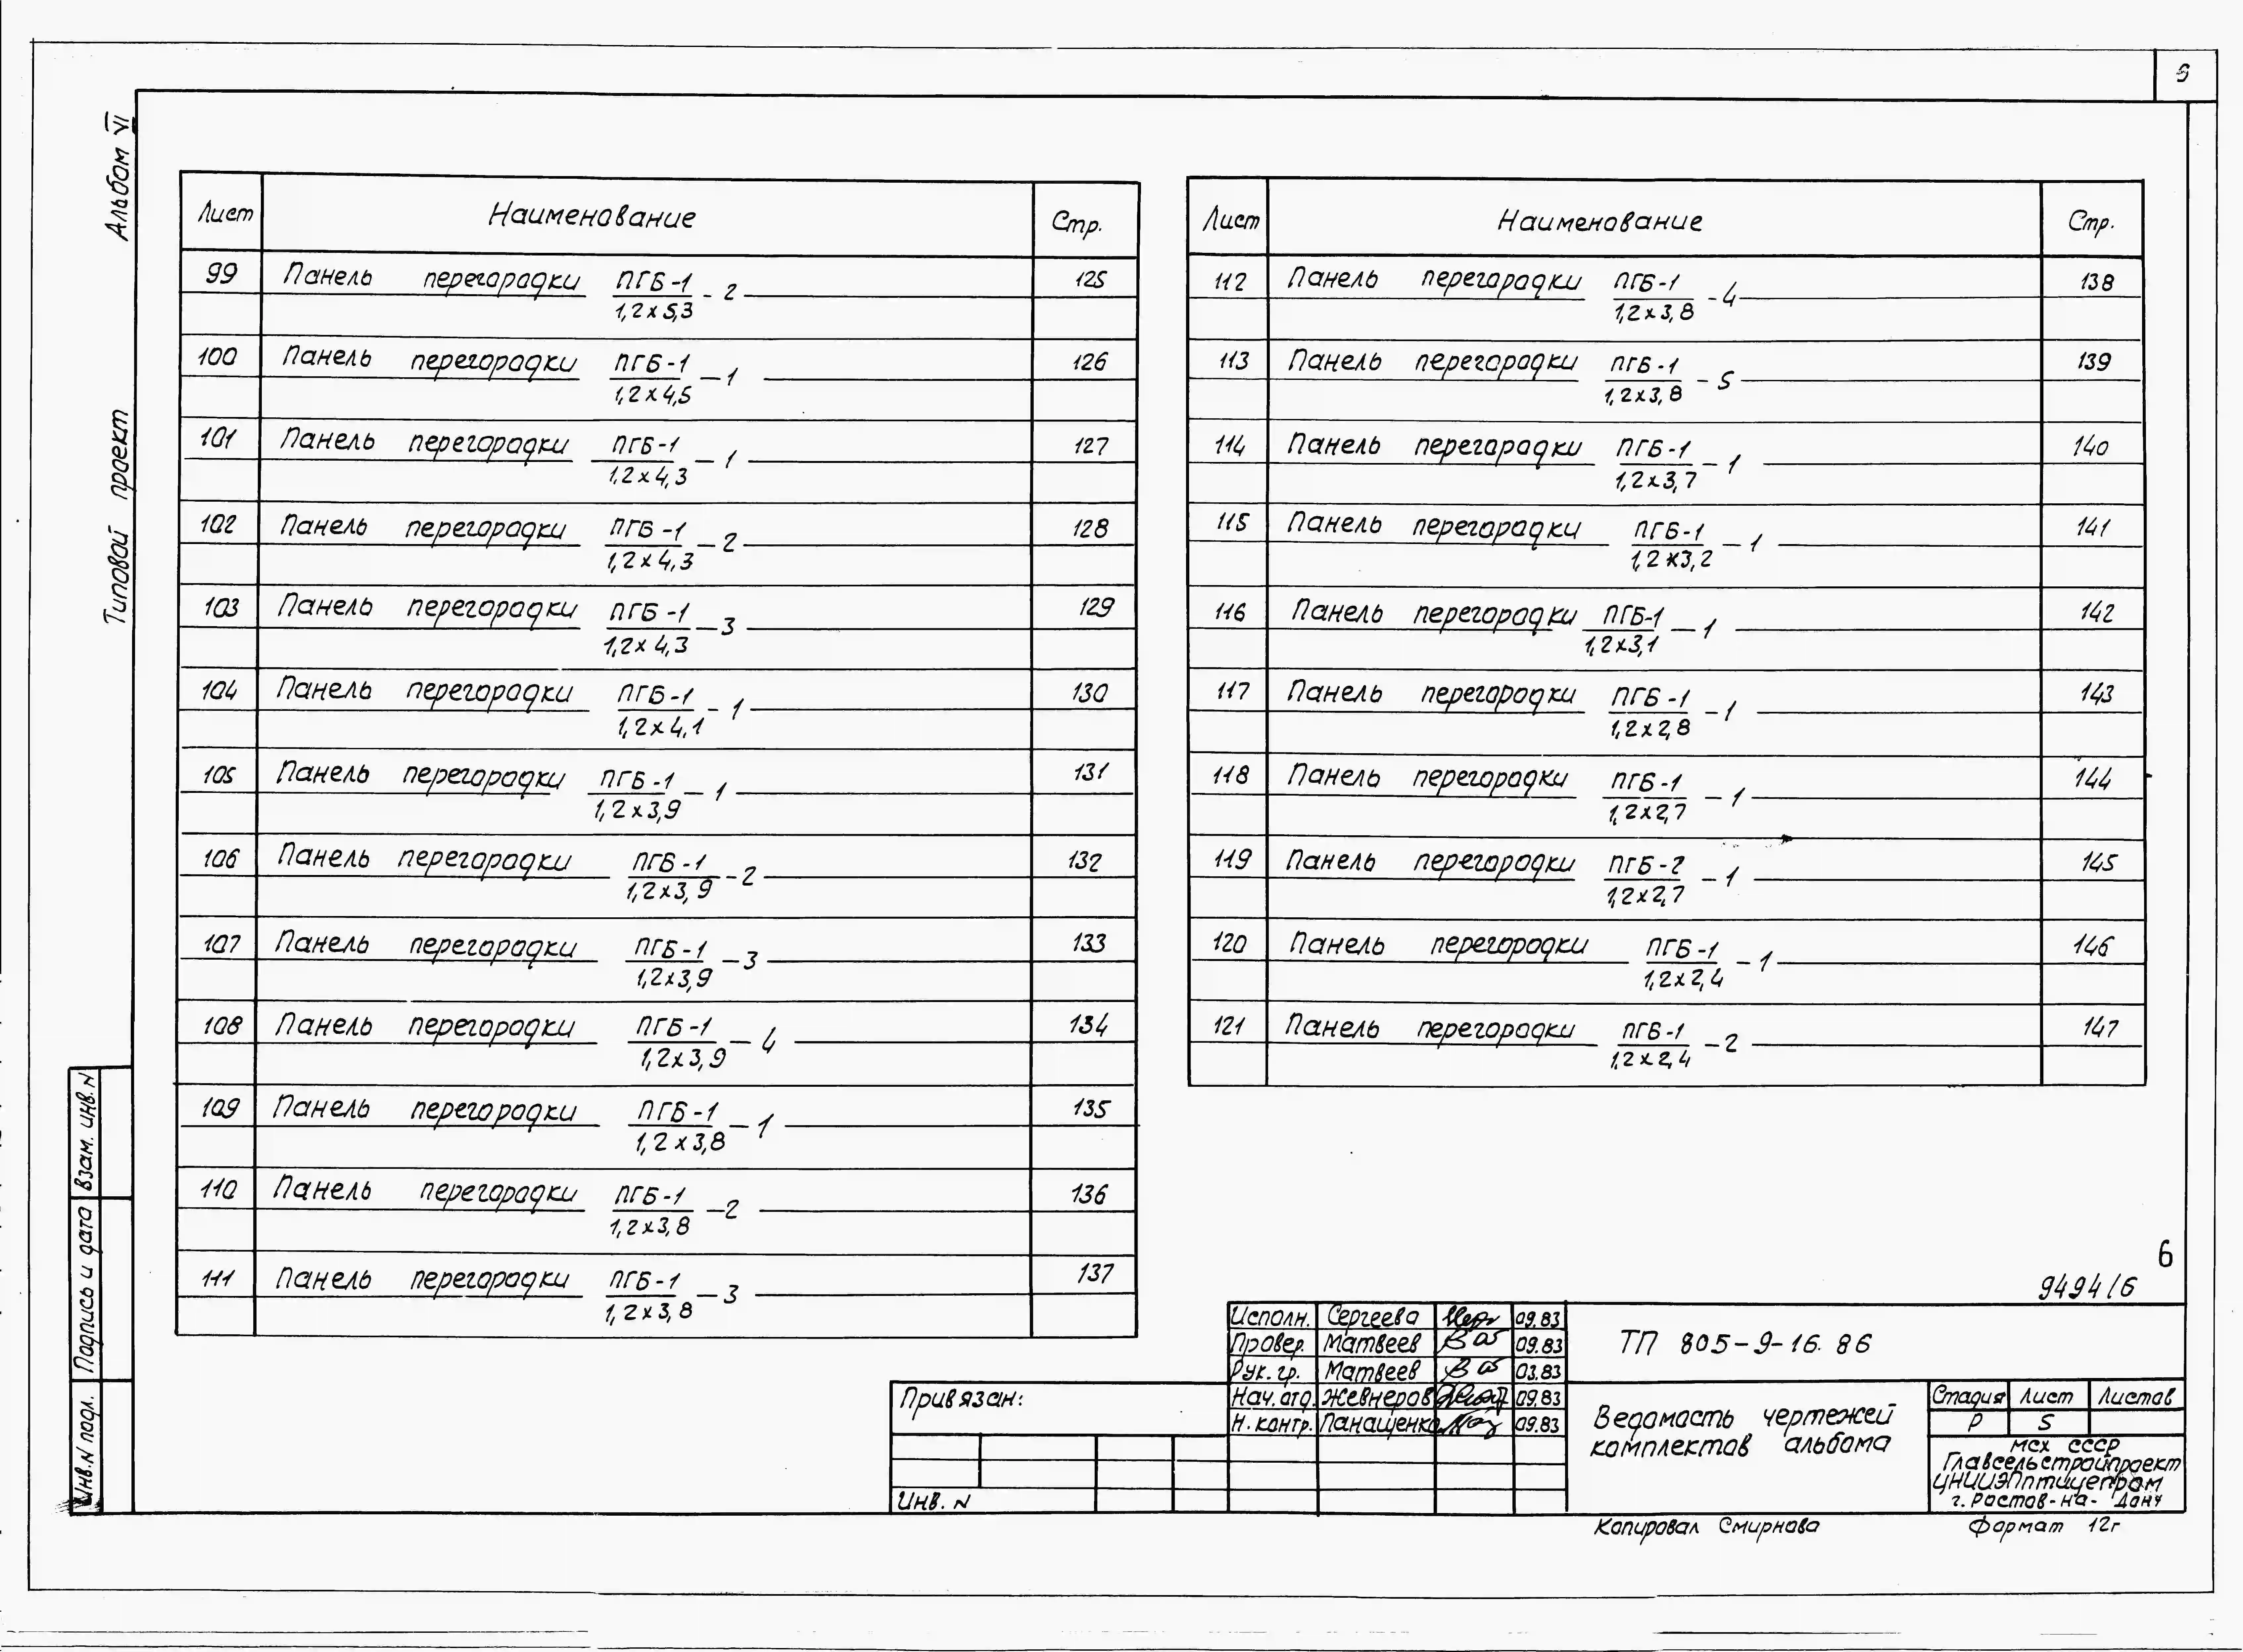 6
Альбом VI
Типовой проект
Лист Наименование Стр.
99 Панель перегородки ПГБ-1 / 1,2х5,3 - 2 125
100 Панель перегородки ПГБ-1 / 1,2х4,5 - 1 126
101 Панель перегородки ПГБ-1 / 1,2х4,3 - 1 127
102 Панель перегородки ПГБ-1 / 1,2х4,3 - 2 128
103 Панель перегородки ПГБ-1 / 1,2х4,3 - 3 129
104 Панель перегородки ПГБ-1 / 1,2х4,1 - 1 130
105 Панель перегородки ПГБ-1 / 1,2х3,9 - 1 131
106 Панель перегородки ПГБ-1 / 1,2х3,9 - 2 132
107 Панель перегородки ПГБ-1 / 1,2х3,9 - 3 133
108 Панель перегородки ПГБ-1 / 1,2х3,9 - 4 134
109 Панель перегородки ПГБ-1 / 1,2х3,8 - 1 135
110 Панель перегородки ПГБ-1 / 1,2х3,8 - 2 136
111 Панель перегородки ПГБ-1 / 1,2х3,8 - 3 137
Лист Наименование Стр.
112 Панель перегородки ПГБ-1 / 1,2х3,8 - 4 138
113 Панель перегородки ПГБ-1 / 1,2х3,8 - 5 139
114 Панель перегородки ПГБ-1 / 1,2х3,7 - 1 140
115 Панель перегородки ПГБ-1 / 1,2х3,2 - 1 141
116 Панель перегородки ПГБ-1 / 1,2х3,1 - 1 142
117 Панель перегородки ПГБ-1 / 1,2х2,8 - 1 143
118 Панель перегородки ПГБ-1 / 1,2х2,7 - 1 144
119 Панель перегородки ПГБ-2 / 1,2х2,7 - 1 145
120 Панель перегородки ПГБ-1 / 1,2х2,4 - 1 146
121 Панель перегородки ПГБ-1 / 1,2х2,4 - 2 147
6
9494/6
Исполн. Сергеева 09.83
Провер. Матвеев 09.83
Рук. гр. Матвеев 03.83
Нач. отд. Жевнеров 09.83
Н. контр. Панащенко 09.83
ТП 805-9-16.86
Ведомость чертежей
комплектов альбома
Стадия Лист Листов
Р 5
МСХ СССР
Главсельстройпроект
ЦНИИЭПптицепром
г. Ростов-на-Дону
Привязан:
Инв. N
Взам. инв. N
Подпись и дата
Инв. N подл.
Копировал Смирнова
Формат 12г